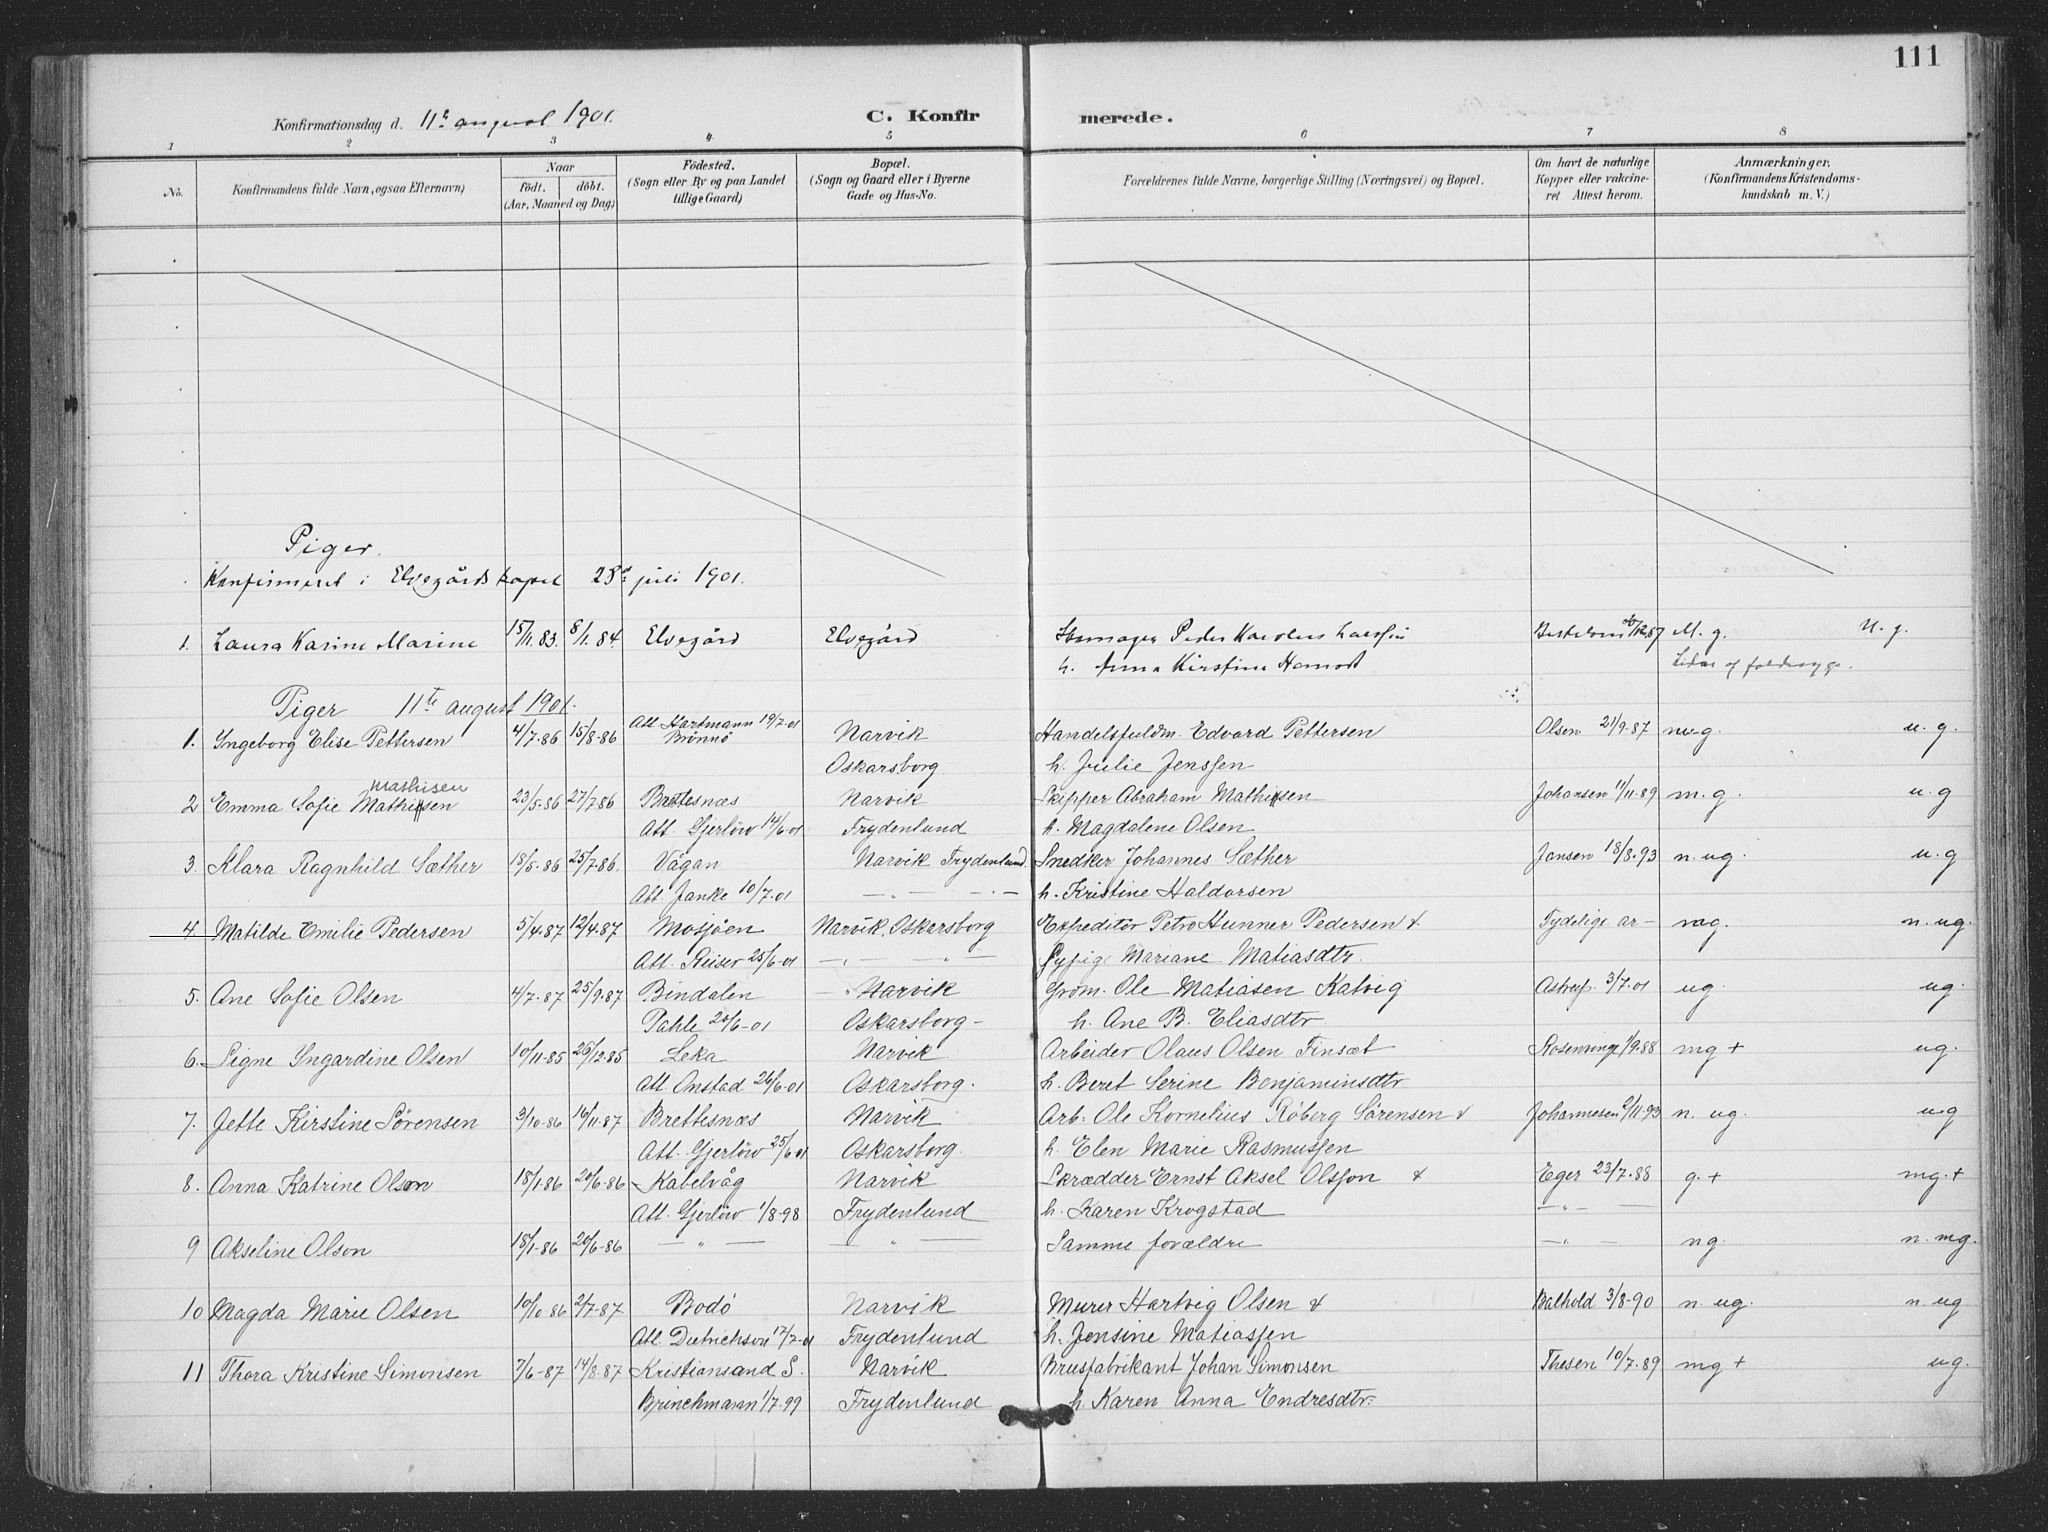 111
Konfirmationsdag d. 11te august 1901. C. Konfirmerede.
1 2 3 4. 5 6 7 8
No. Konfirmandens fulde Navn, ogsaa Efternavn) Naar födt. döbt. (Aar, Maaned og Dag) Födested. (Sogn eller By og paa Landet tillige Gaard) Bopæl. (Sogn og Gaard eller i Byerne Gade og Hus-No. Forældrenes fulde Navne, borgerlige Stilling (Næringsvei) og Bopæl. Om havt de naturlige Kopper eller vakcineret Attest herom. Anmærkninger. (Konfirmandens Kristendomskundskab m. V.)
Piger.
Konfirmeret i Elvegårds kapel 28de juli 1901.
1. Laura Karine Marine 15/11.83. 8/1.84. Elvegård Elvegård Peder Larssen M. g. U. g.
h. Anna Kirstine
Piger 11te august 1901.
Att. Hartmann 19/7-01
1. Ingeborg Elise Pettersen 4/7.86 15/8-86 Brønnø Narvik Handelsfuldm. Edvard Pettersen Olsen 21/9.87 mug. u. g.
Oskarsborg h. Julie Jenssen
Mathisen
2 Emma Sofie Mathissen 23/5.86 27/7.86 Brettesnæs Narvik Skipper Abraham Mathissen Johansen 11/11.89 m.g. u.g
Att. Gjerløw 14/6-01 Frydenlund h. Magdalene Olsen
3. Klara Ragnhild Sæther 18/5.86 25/7-86. Vågan Narvik Frydenlund. Snedker Johannes Sæther Jensen 18/8.93 n. ug. u.g
Att. Janke 10/7.01 — „ — h. Kristine Haldorsen
4 Matilde Emilie Pedersen 5/4.87 12/4.87 Mosjøen Narvik, Oskarsborg Expeditör Petro Hunner Pedersen & Tydelige ar- mg. n. ug.
Att. Reiser 25/6-01 — „ — „ — Sypig. Mariane Matiasdtr.
5. Ane Sofie Olsen 4/7-87 25/9.87 Bindalen Narvik Grdm. Ole Matiasen Kalvig 3/7.01 ug. ug.
Pahle 20/6-01 Oskarsborg- h. Ane B. Eliasdtr.
6. Signe Yngardine Olsen 10/11-85 26/12.85 Leka Narvik Arbeider Olaus Olsen Finsæt Rosenvinge 1/9.88 mg + ug.
Att Onstad 26/6-01 Oskarsborg. h. Beret Serine Benjaminsdtr
7. Jette Kirstine Sörensen 3/10-86 16/11.87 Brettesnæs Narvik Arb. Ole Kornelius Röberg Sörensen & Johannesen 2/11.93 n. ug. u.g
Att. Gjerløw 25/6-01 Oskarsborg. h. Elen Marie Rasmussen
8. Anna Katrine Olson 18/1.86 20/6-86 Kabelvåg Narvik Skrædder Ernst Aksel Olsson & Eger 23/7.88 g. + mg.+
Att. Gjerløw 1/8-98 Frydenlund h. Karen Krogstad — „ —
9 Akseline Olson 18/1-86 20/6-86 — „ — — „ — Samme forældre — „ — ng. n. mg.
10 Magda Marie Olsen 10/10.86 2/7-87. Bodö Narvik Murer Hartvig Olsen & Balhold 3/8-90 n. ug. n. ug
Att. Dietrichson 17/7-01 Frydenlund h. Jensine Matiassen
11 Thora Kristine Simonsen 7/6-87 14/8.87 Kristiansand S. Narvik Brusfabrikant Johan Simonsen Thesen 10/7.89 mg + ug.
Brinchmann 1/7.99 Frydenlund h. Karen Anna Endresdtr.